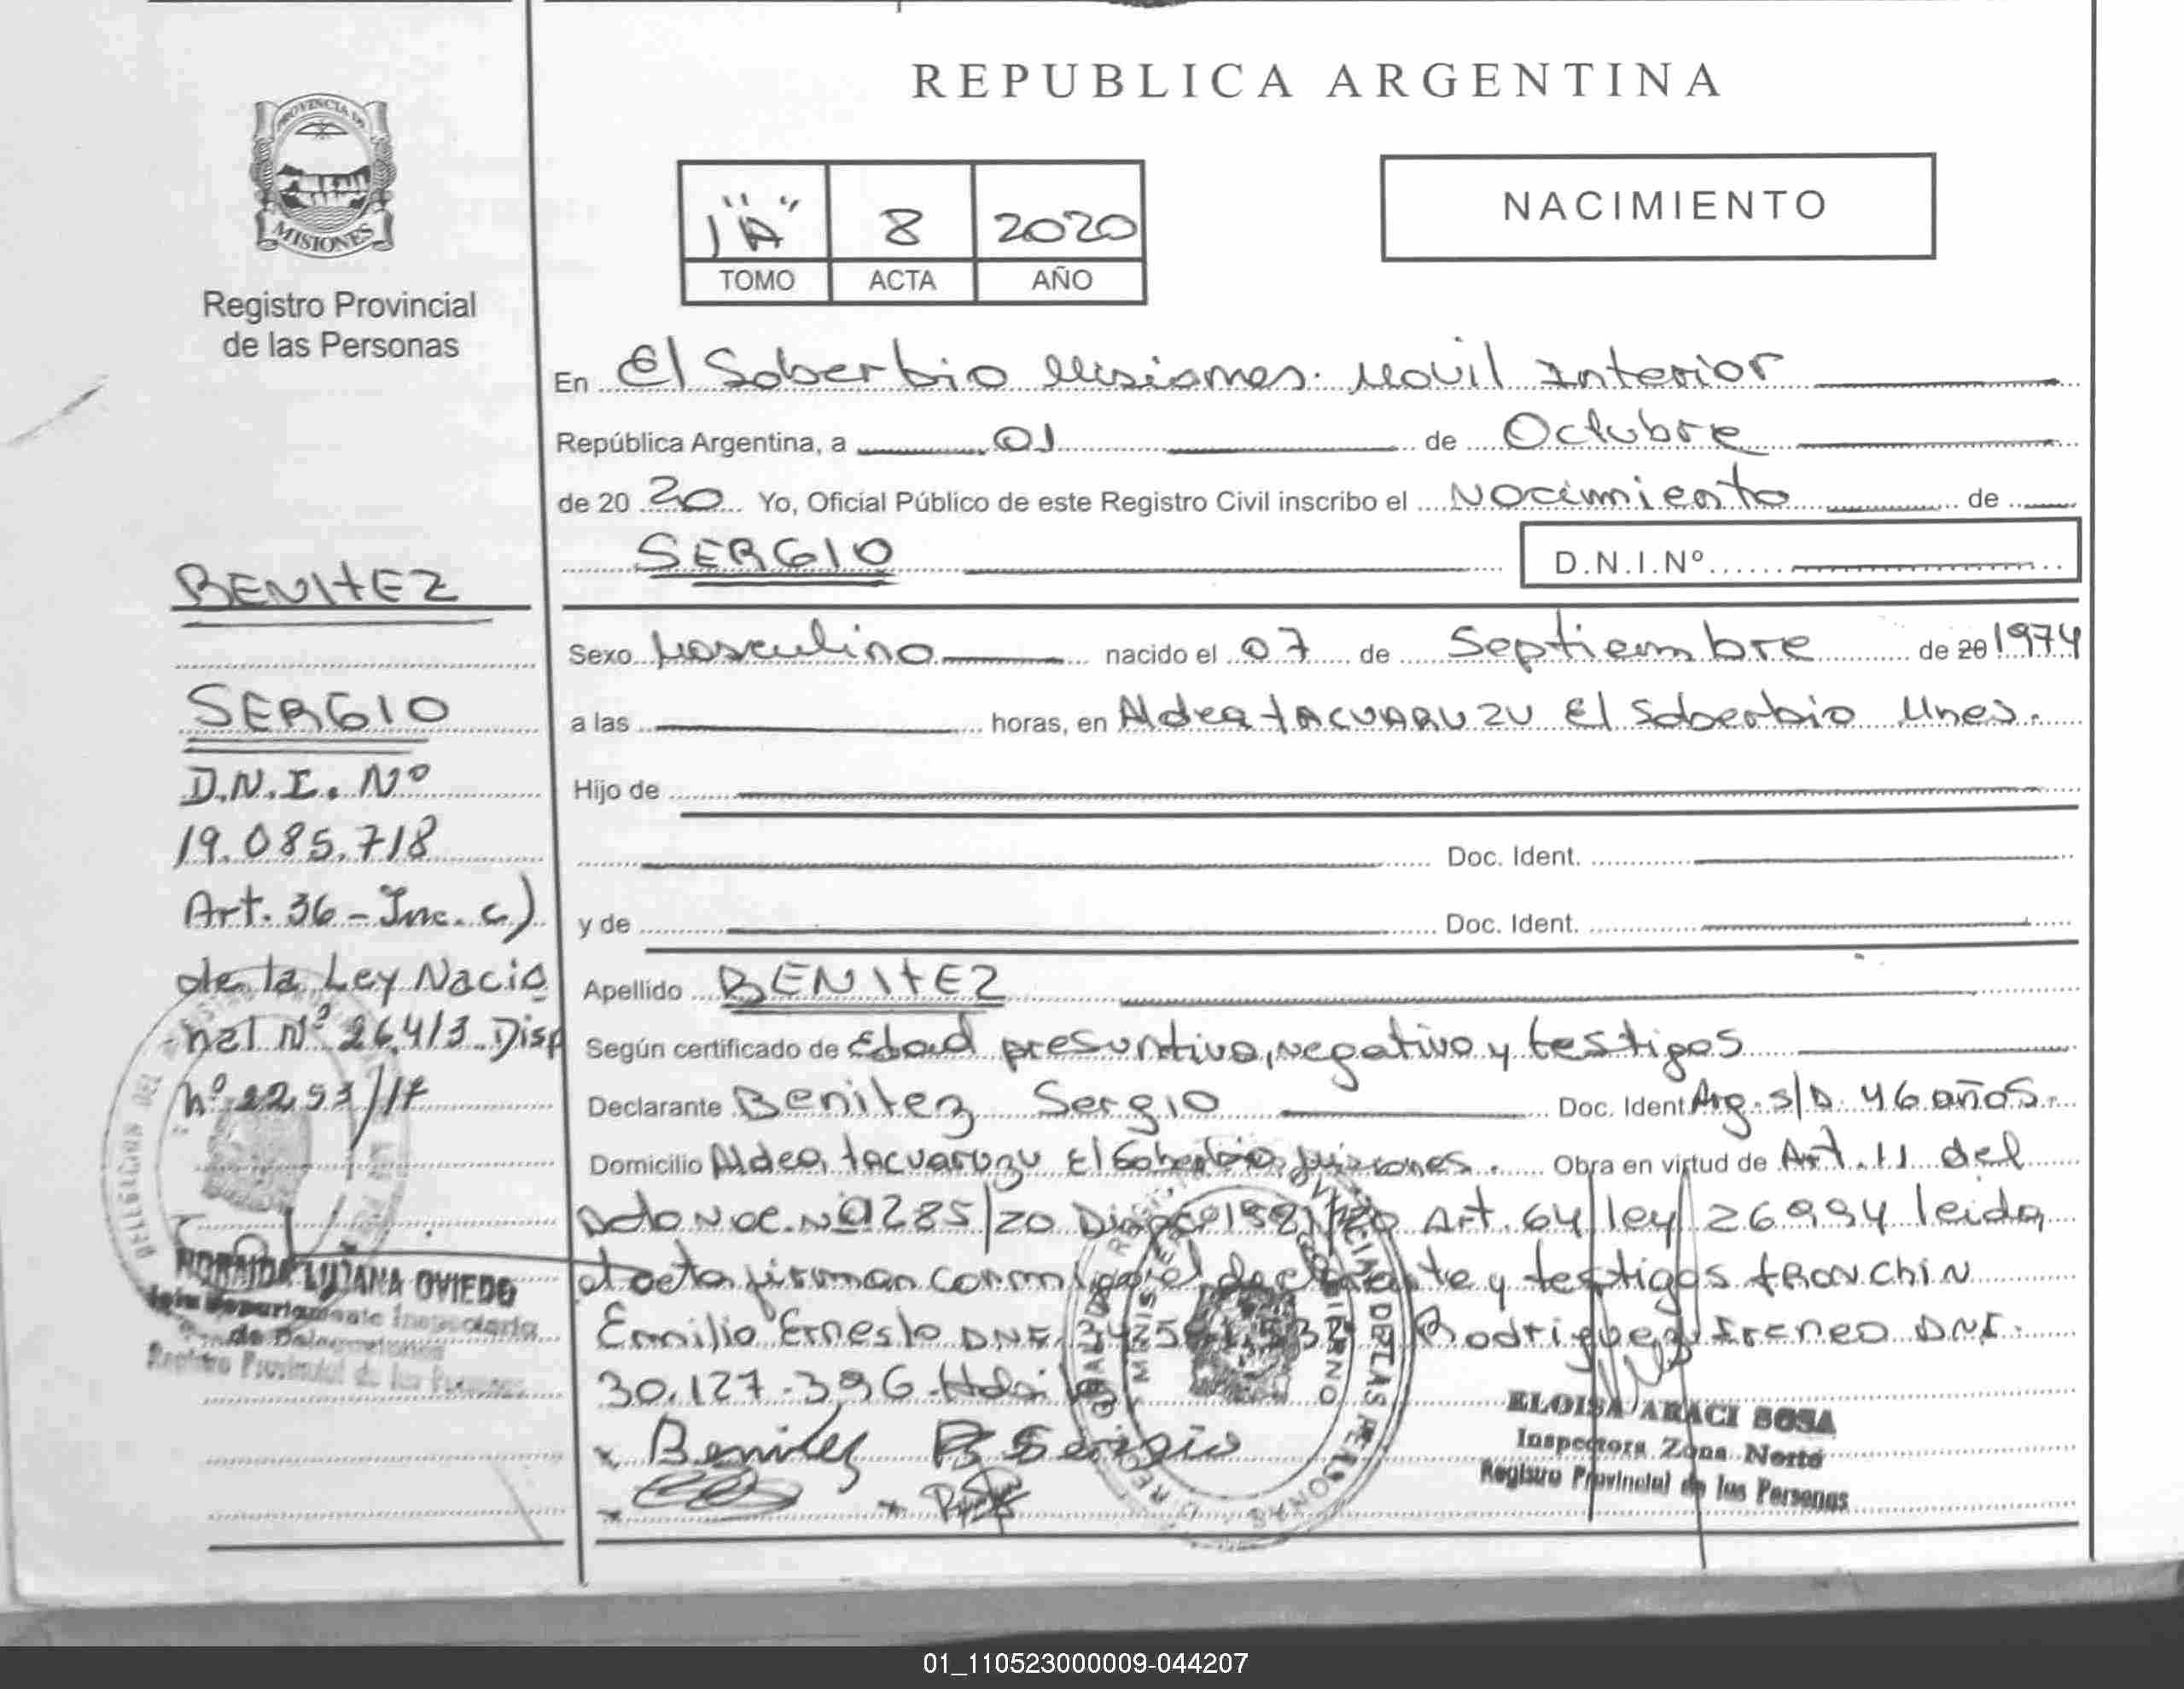 REPUBLICA ARGENTINA
PROVINCIA DE
MISIONES
Registro Provincial
de las Personas
1 "A" 8 2020
TOMO ACTA AÑO
NACIMIENTO
En El Soberbio Misiones. Movil Interior
República Argentina, a 01 de Octubre
de 20 20 Yo, Oficial Público de este Registro Civil inscribo el Nacimiento de
SERGIO D.N.I.Nº
Sexo Masculino nacido el 07 de Septiembre de 20 1974
a las horas, en Aldea TACUARUZU El Soberbio Mnes.
Hijo de
Doc. Ident.
y de Doc. Ident.
Apellido BENITEZ
Según certificado de Edad presuntiva, negativo y testigos
Declarante Benitez Sergio Doc. Ident Arg. S/D. 46 años.
Domicilio Aldea tacuaruzu El Soberbio Misiones. Obra en virtud de Art. 11 del
285/20 Art. 64 ley 26994 leida
el acta firman conmigo el declarante y testigos tRONChiN
Emilio Ernesto DNI. Rodriguez Ireneo DNI.
30.127.396.
Benitez Sergio
ELOISA ARACI SOSA
Inspectora Zona Norte
Registro Provincial de las Personas
BENITEZ
SERGIO
D.N.I. Nº
19.085.718
Art. 36 - Inc. c)
de la Ley Nacio
nal Nº 26.413 Disp
nº 2293/17
LUJANA OVIEDO
Departamento Inspectoria
de Delegaciones
Registro Provincial de las Personas
01_110523000009-044207